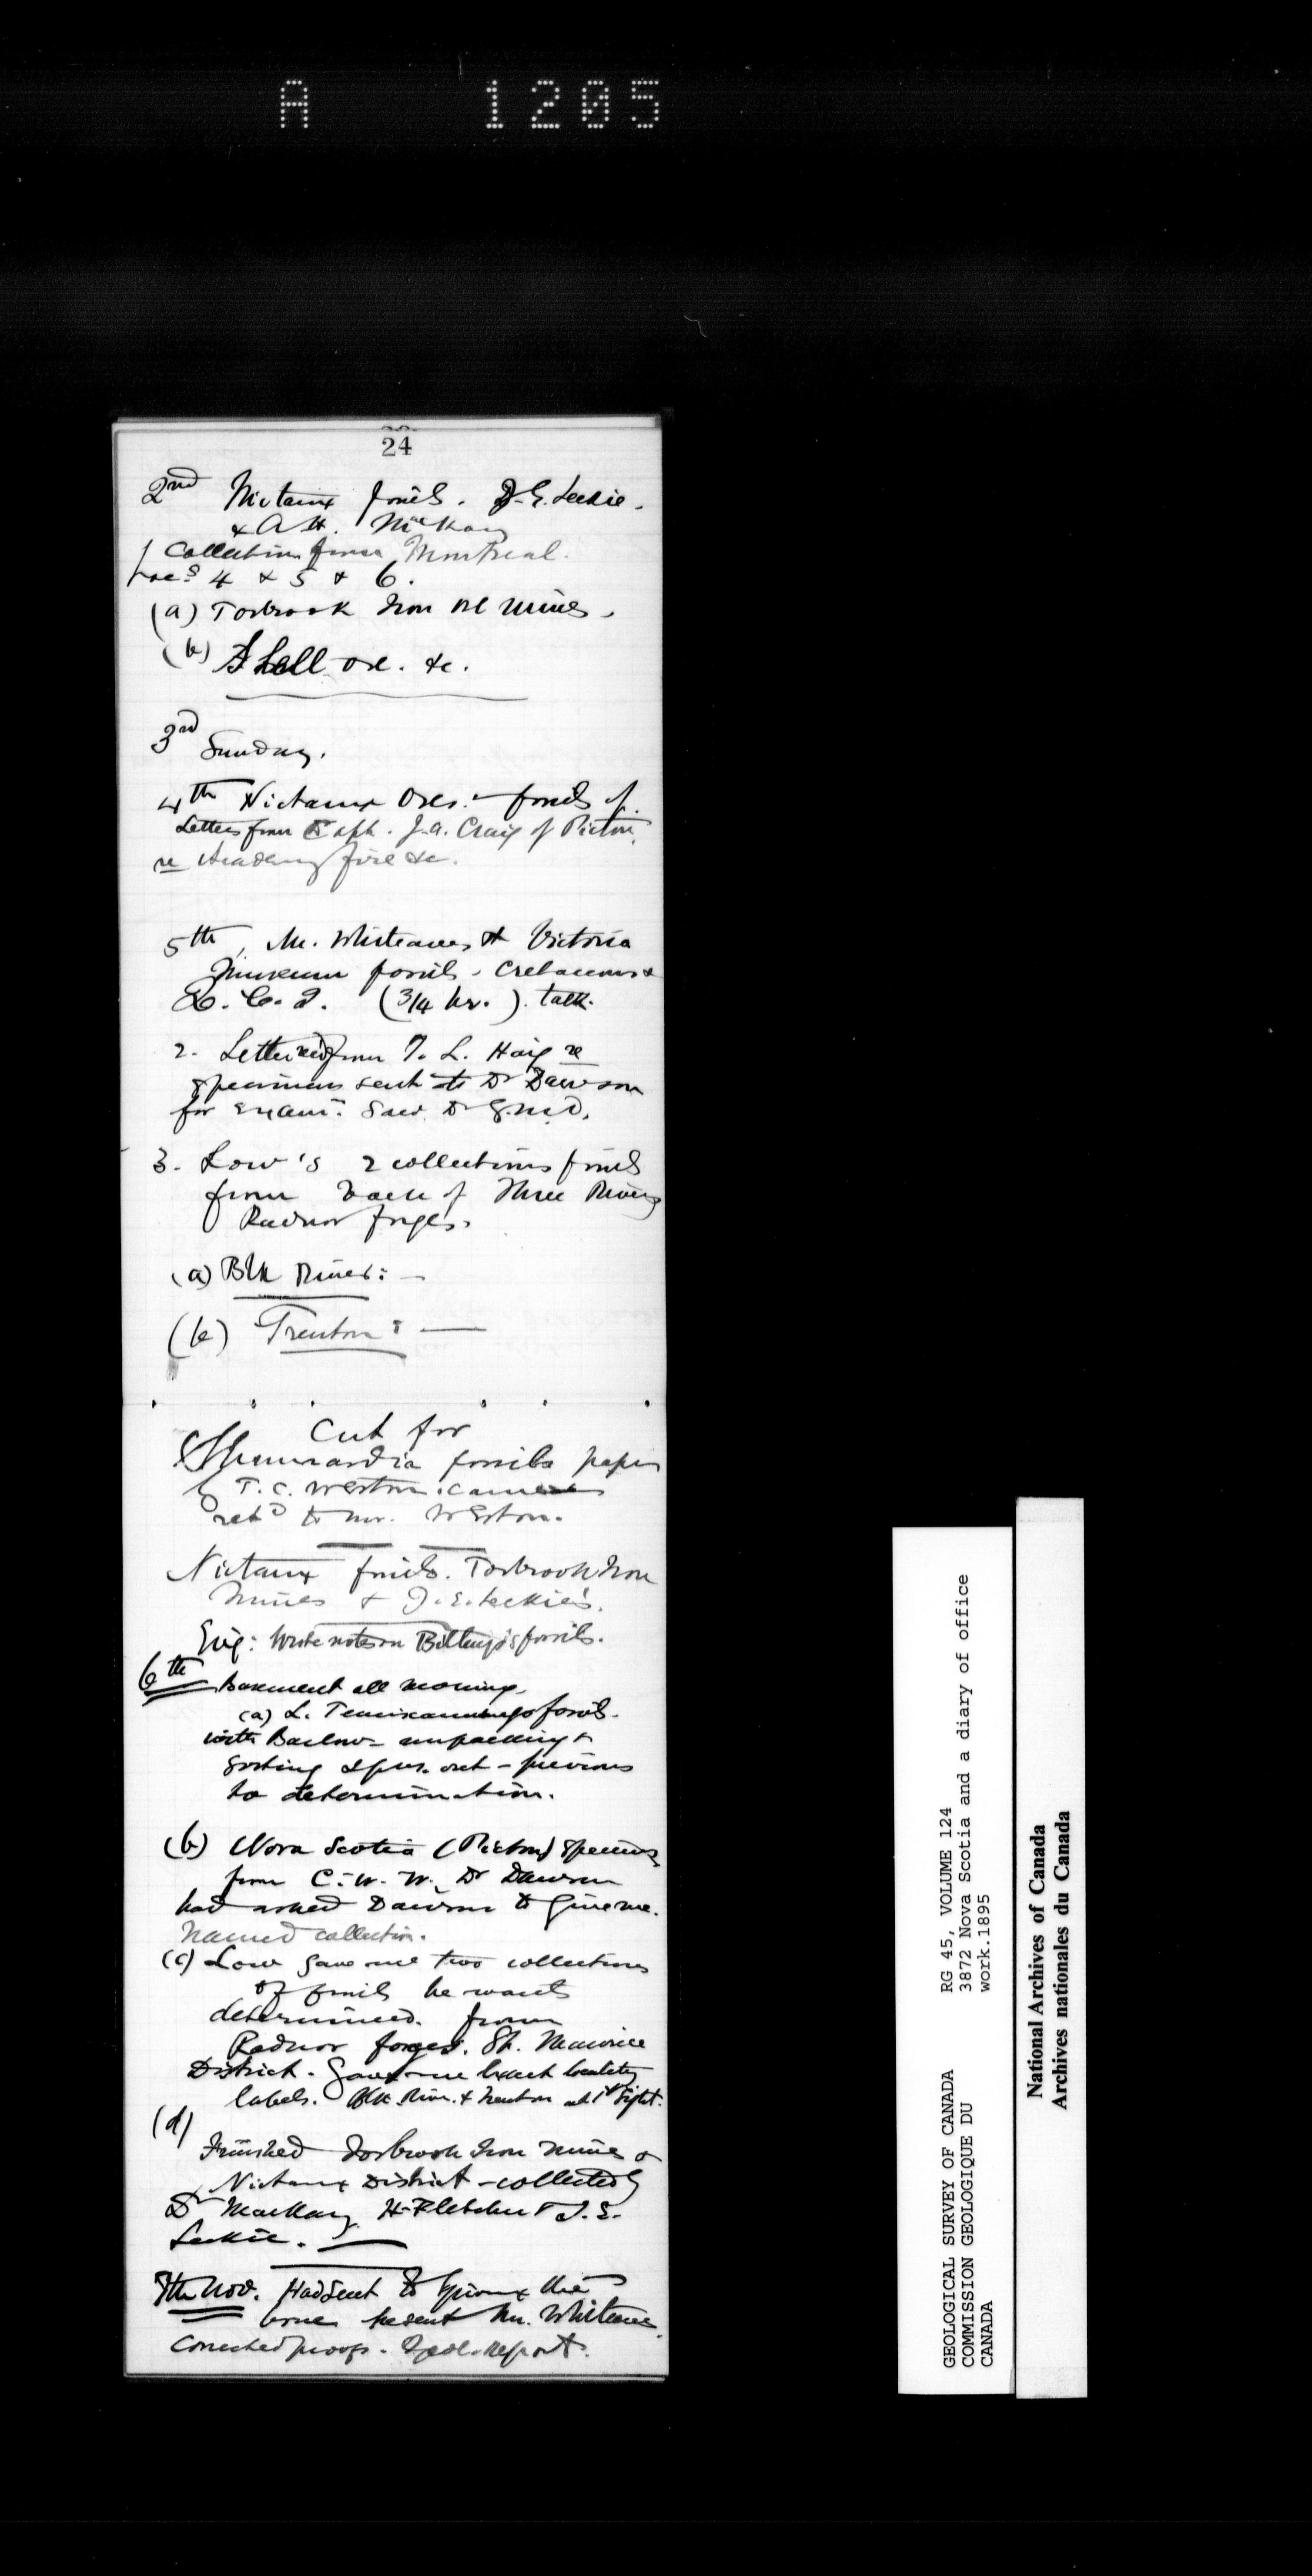 A 1205
24
2nd Nictaux fossils. J. E. Leckie.
& A. H. McKay
Collection from Montreal.
4 & 5 & 6.
(a) Torbrook Iron Ore Mines.
(b) Shell ore. &c.
3rd Sunday.
4th Nictaux Ores. fossils of
Letter from Capt. J. A. Craig of Pictou,
re Academy fire &c.
5th, Mr. Whiteaves & Victoria
Museum fossils. Cretaceous &
Q. C. I. (3/4 hr.). talk.
2. Letter rec'd from T. L. Haig re
specimens sent to Dr Dawson
for exam. Saw Dr G.M.D.
3. Low's 2 collections fossils
from back of Three Rivers
Radnor forges.
(a) Blk River: —
(b) Trenton: —
Cut for
Shumardia fossils paper
by T. C. Weston. came
ret'd to Mr. Weston.
Nictaux fossils. Torbrook Iron
Mines & J. E. Leckie's.
Evg: Wrote notes on Billings's fossils.
6th Basement all morning.
(a) L. Temiscamingo fossils.
with Barlow — unpacking &
sorting out — previous
to determination.
(b) Nova Scotia (Pictou) specimens
from C. W. W. Dr Dawson
had asked Dawson to give me.
Named collection.
(c) Low gave me two collections
of fossils he wants
determined. from
Radnor forges. St. Maurice
District. Gave me exact locality
labels. Blk. Riv. & Trenton at 1st sight.
(d)
Finished Torbrook Iron Mines &
Nictaux District — collected by
Dr MacKay H. Fletcher & J. E.
Leckie. —
7th Nov. Had sent to the
bone he sent Mr. Whiteaves.
Corrected proofs. Geol. Report.
GEOLOGICAL SURVEY OF CANADA
COMMISSION GEOLOGIQUE DU
CANADA
RG 45, VOLUME 124
3872 Nova Scotia and a diary of office
work.1895
National Archives of Canada
Archives nationales du Canada